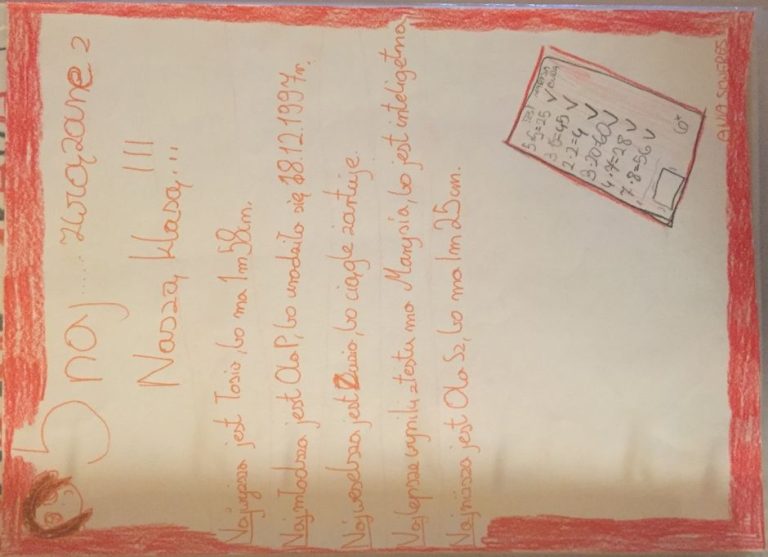 5 naj.... związane z
Naszą klasą...!!!
Najwyższa jest Tosia, bo ma 1m 58cm.
Najmłodsza jest Ola P, bo urodziła się 18.12.1997r.
Najweselsza jest Zuzia, bo ciągle żartuje.
Najlepsze wyniki z testu ma Marysia, bo jest inteligetna
Najniższa jest Ola Sz, bo ma 1m 25cm.
5·5=25 V
2·2=4 V
3·20=60 V
4·7=28 V
7·8=56 V
6+